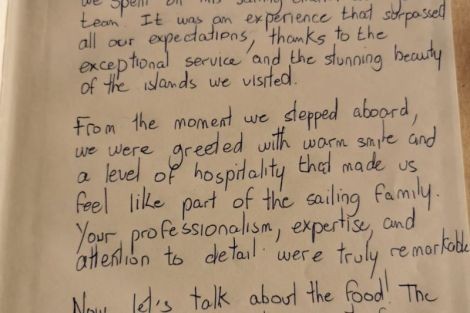 we spent on this sailing
team. It was an experience that surpassed
all our expectations, thanks to the
exceptional service and the stunning beauty
of the islands we visited.
From the moment we stepped aboard,
we were greeted with warm smile and
a level of hospitality that made us
feel like part of the sailing family.
Your professionalism, expertise, and
attention to detail were truly remarkable
Now let's talk about the food! The